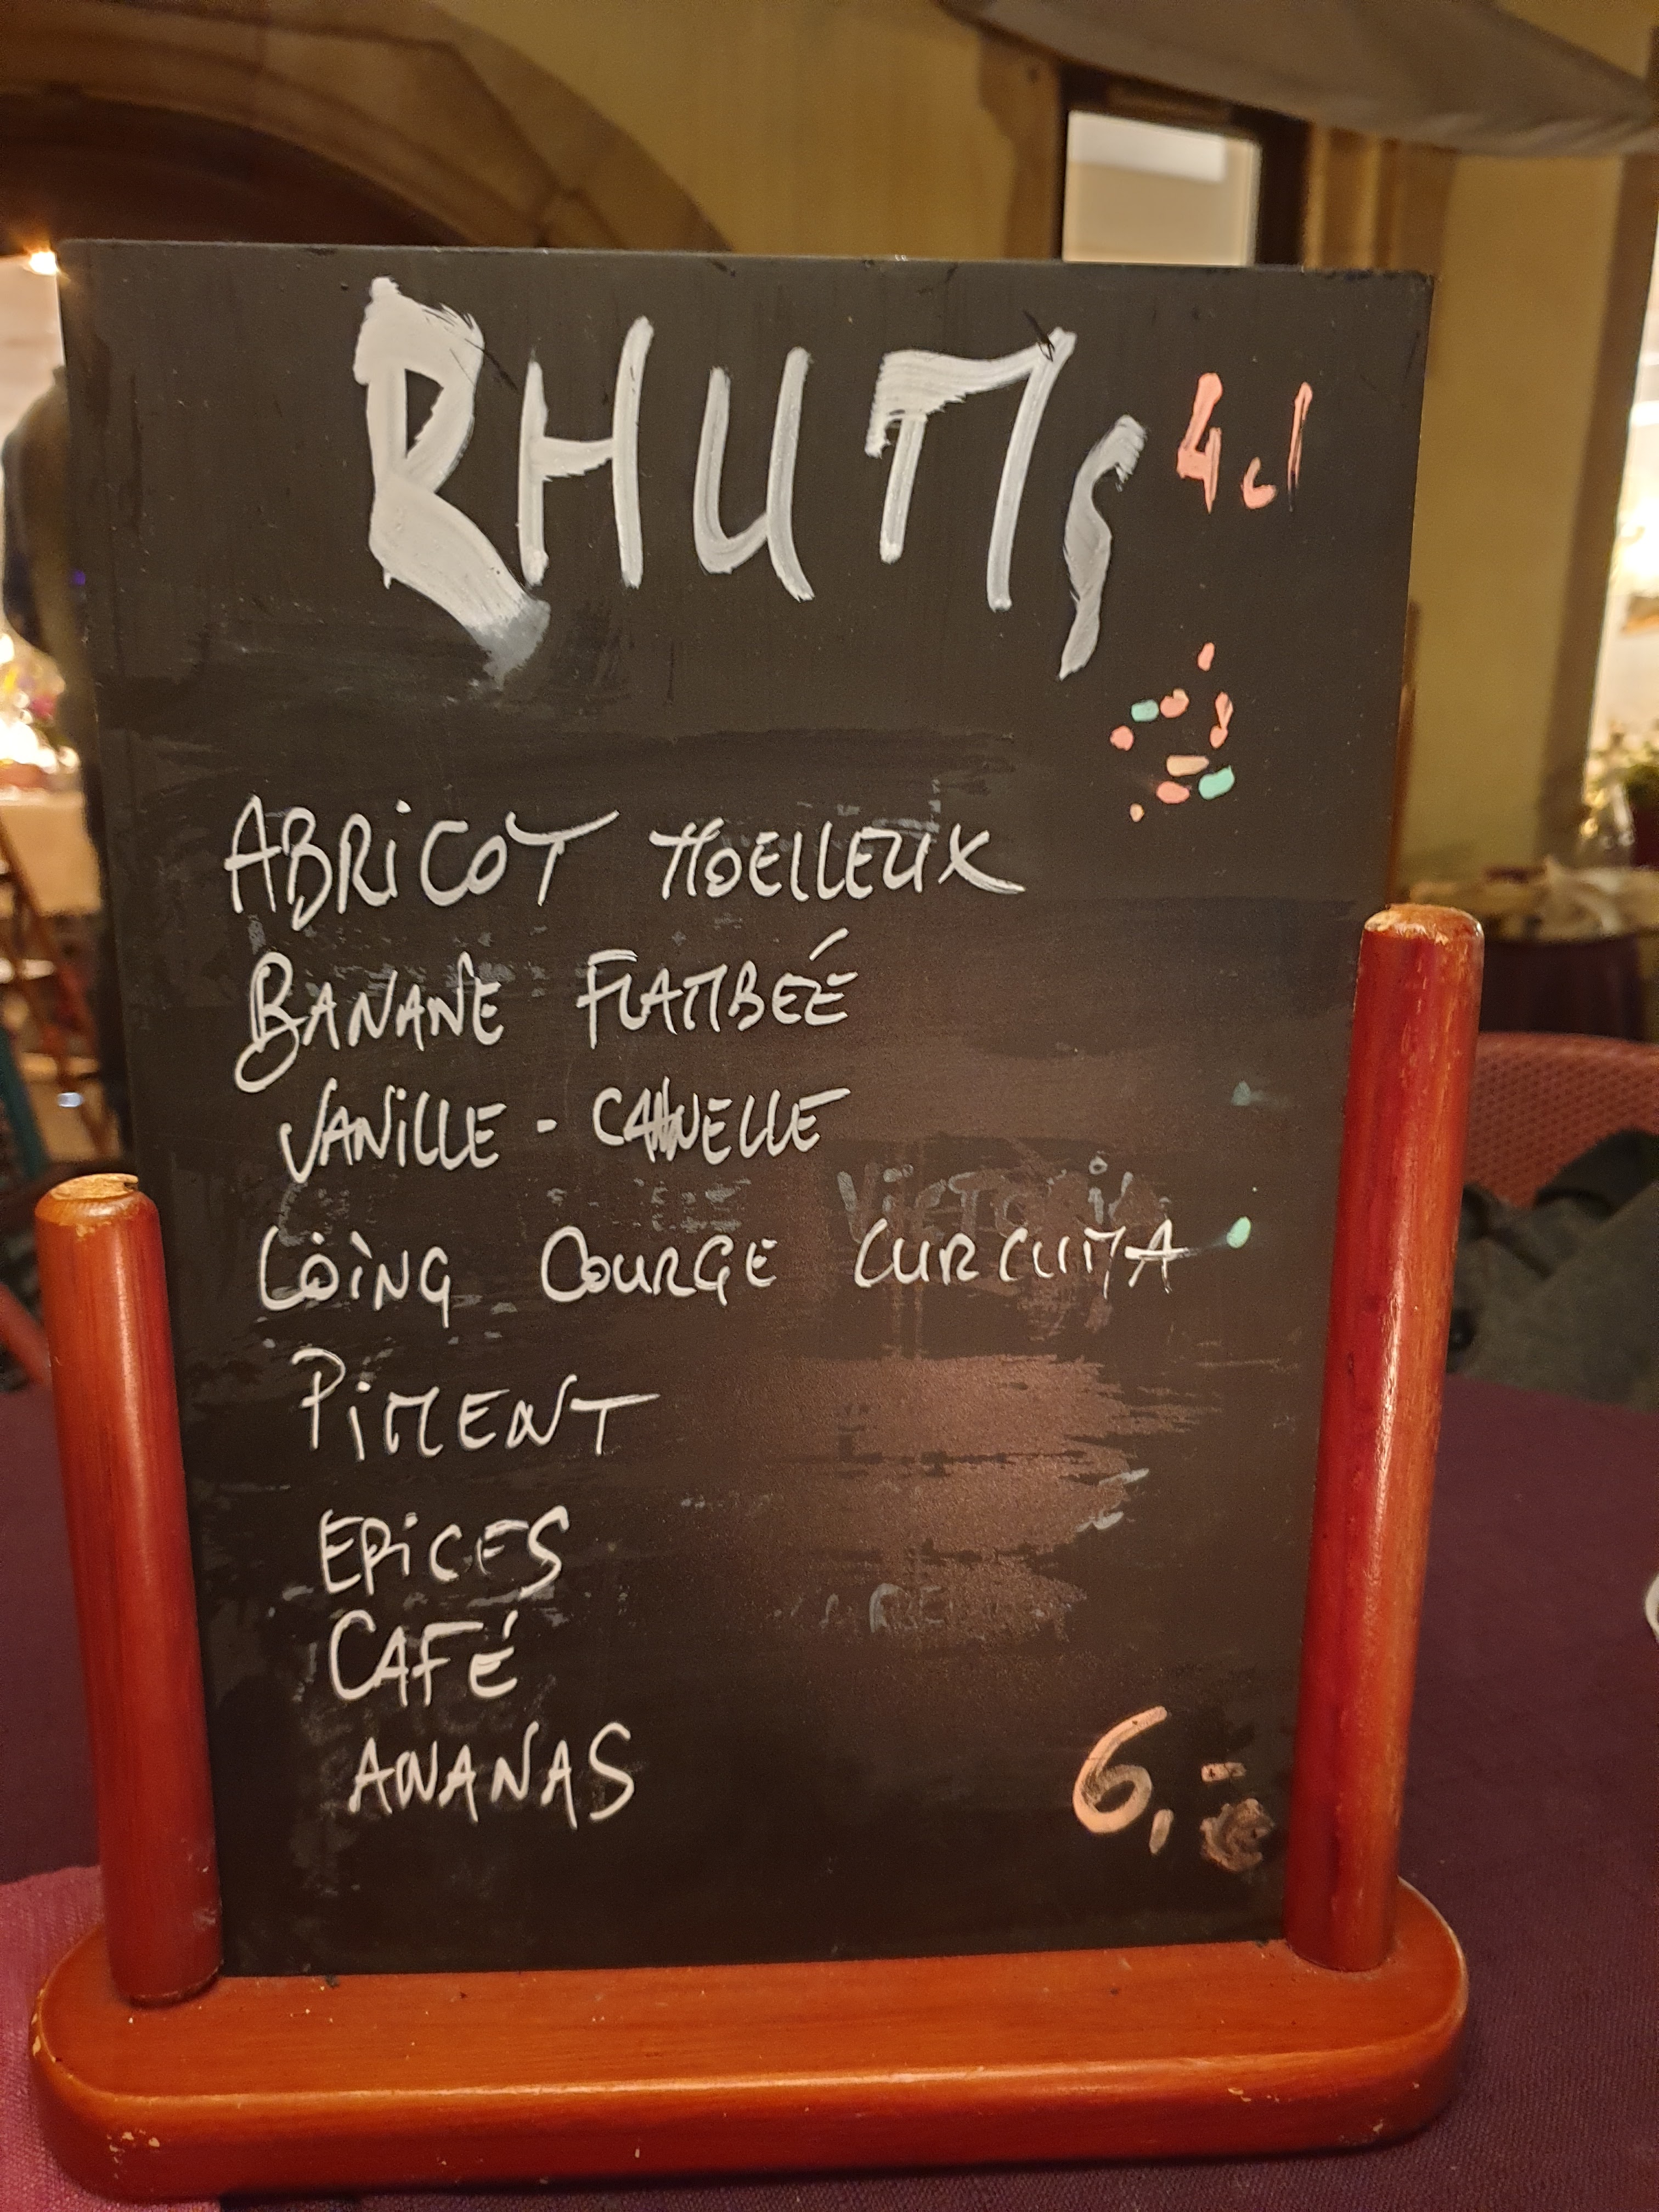 RHUMs 4cl
ABRiCOT MOELLEUX
BANANE FLAMBEÉ
VANiLLE - CANNELLE
COING COURGE CURCUMA
PiMENT
EPiCES
CAFÉ
ANANAS
6,-